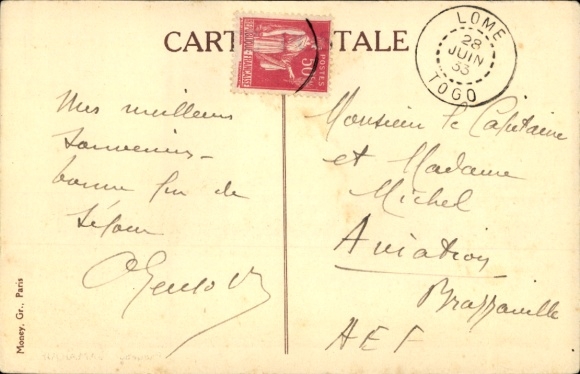 CARTE POSTALE
POSTES
50
LOME
28
JUIN
33
TOGO
Mes meilleurs
souvenirs -
bonne fin de
séjour
Monsieur le Capitaine
et Madame
Michel
Aviation
Brazzaville
AEF
Money, Gr., Paris